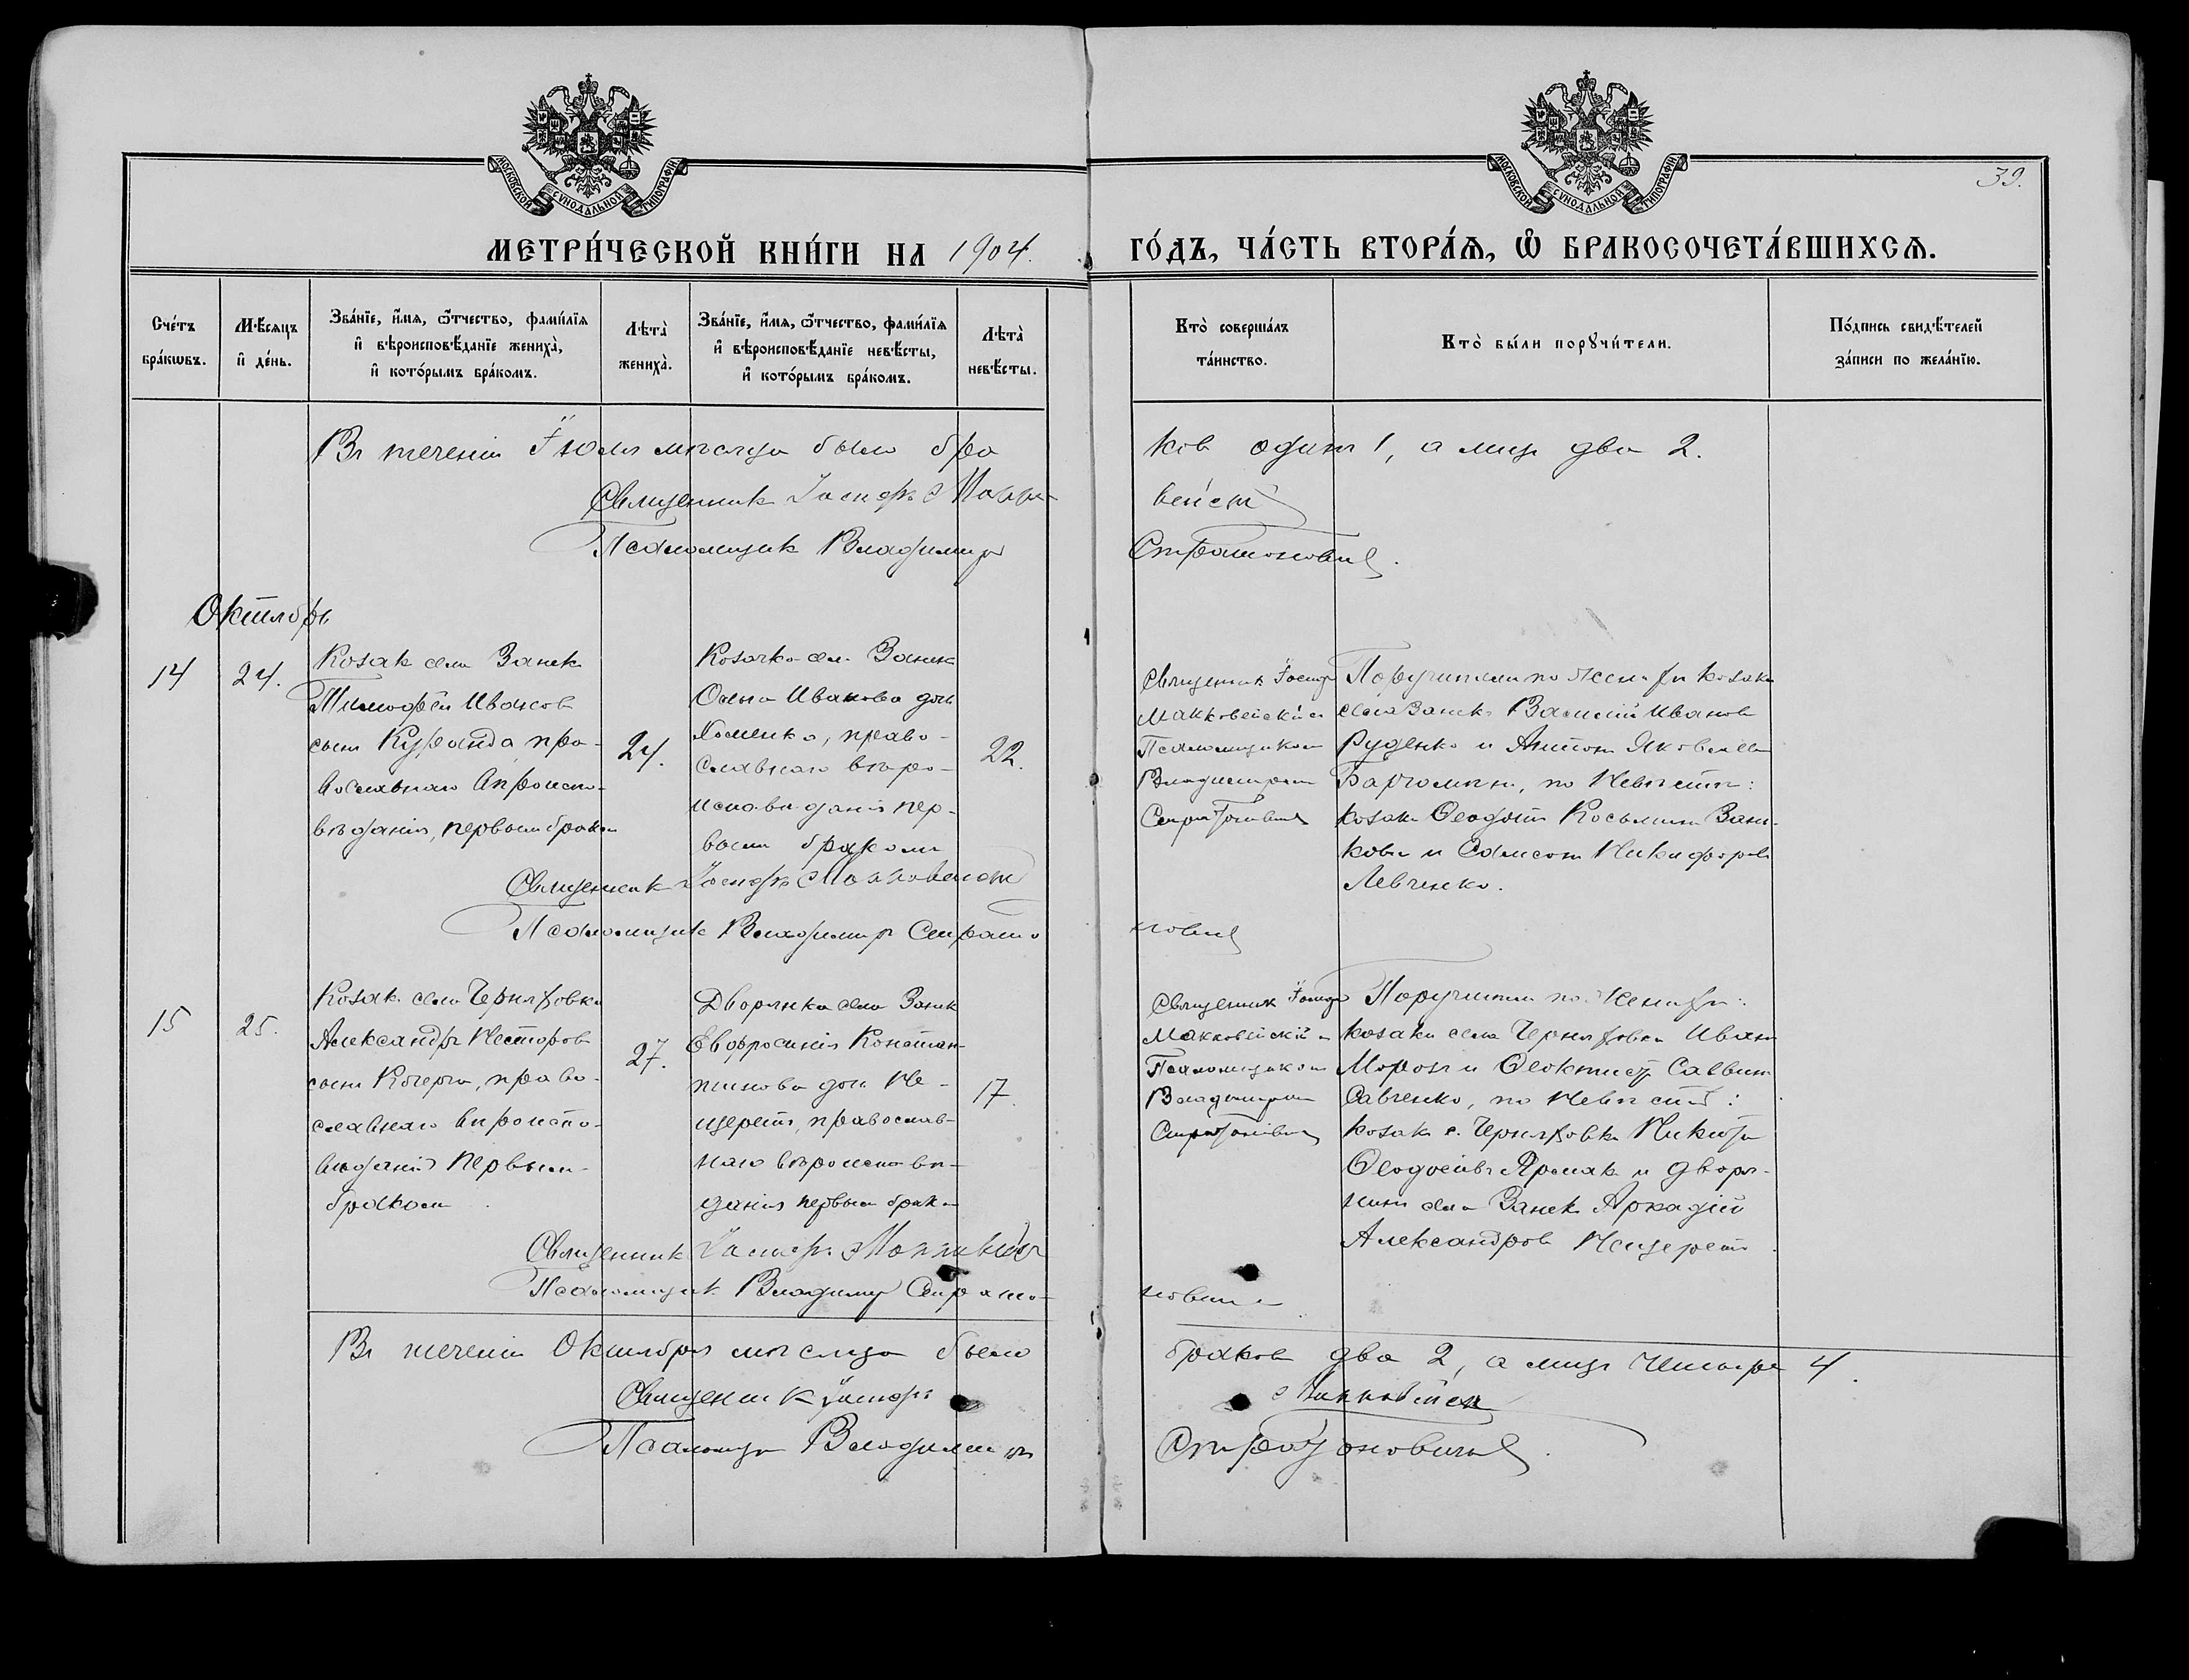 МОСКОВСКОЙ СУНОДАЛЬНОЙ ТИПОГРАФІИ
МОСКОВСКОЙ СУНОДАЛЬНОЙ ТИПОГРАФІИ
39.
МЕТРИ́ЧЕСКОЙ КНИ́ГИ НА 1904. ГО́ДЪ, ЧА́СТЬ ВТОРА́Ѧ, Ѡ҆ БРАКОСОЧЕТА́ВШИХСѦ.
Сче́тъ бра́кѡвъ.
Мѣ́сяцъ и҆ де́нь.
Зва́нїе, и҆́мѧ, ѻ҆́тчество, фами́лїѧ
и҆ вѣроисповѣ́данїе жениха̀,
и҆ кото́рымъ бра́комъ.
Лѣта̀ жениха̀.
Зва́нїе, и҆́мѧ, ѻ҆́тчество, фами́лїѧ
и҆ вѣроисповѣ́данїе невѣ́сты,
и҆ кото́рымъ бра́комъ.
Лѣта̀ невѣ́сты.
Кто̀ соверша́лъ та́инство.
Кто̀ бы́ли порꙋчи́тели.
По́дпись свидѣ́телей за́писи по жела́нїю.
Въ теченіи Іюля мѣсяца было бра
ков один 1, а лицъ два 2.
Священникъ Іосифъ Макка
вейскій
Псаломщикъ Владимиръ
Стратоновичъ.
Октябрь
14
24.
Козакъ села Занек
Тимофей Иванов
сынъ Куранда, пра-
вославнаго вѣроиспо-
вѣданія, первымъ браком
24.
Козачка сел. Занек
Ольга Иванова дочь
Хоменко, право-
славнаго вѣро-
исповѣданія пер-
вымъ бракомъ
22.
Священник Іосиф
Маккавейскій с
Псаломщиком
Владимиромъ
Стратоновичъ
Поручители по женихѣ козаки
села Занек Василій Иванов
Руденко и Антон Яковлев
по Невѣстѣ:
козаки Ѳеодотъ Косьмин Зань-
кова и Самсон Никифоров
Левченко.
Священник Іосифъ Маккавейскій
Псаломщикъ Владимиръ Страто
новичъ
15
25.
Козак села Черняховки
Александръ Несторов
сынъ Кочерга, право-
славнаго вѣроиспо-
вѣданія Первымъ
бракомъ
27.
Дворянка села Занек
Евфросинія Констан-
тинова дочь Не-
щеретъ, православ-
наго вѣроисповѣ-
данія первым браком
17.
Священник Іосиф
Маккавейскій с
Псаломщиком
Владимиромъ
Стратоновичъ
Поручители по Женихѣ:
козаки села Черняховки Иван
Мороз и Ѳеоктистъ Саввин
Савченко, по Невѣстѣ:
козак с. Черняховки Никита
Ѳеодосіевъ Ярмак и дворя-
нинъ села Занек Аркадій
Александров Нещеретъ.
Священник Іосифъ Маккавейскій
Псаломщик Владимир Страто-
новичъ
Въ теченіи Октября мѣсяца было
браков два 2, а лицъ Четыре 4.
Священникъ Іосифъ
Маккавейскій
Псаломщ Владимиръ
Стратоновичъ.